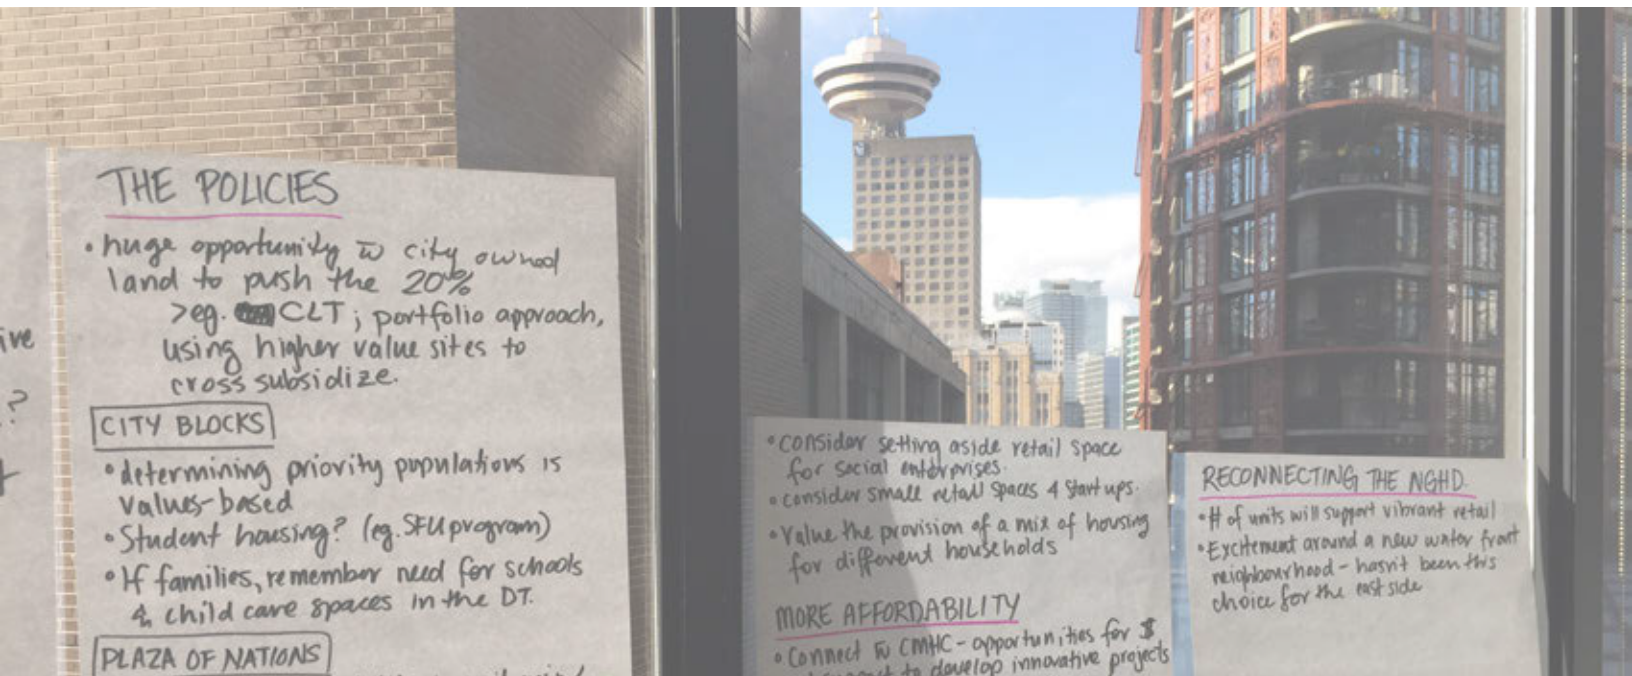 ive
?
THE POLICIES
• huge opportunity w city owned
land to push the 20%
>eg. CLT; portfolio approach,
using higher value sites to
cross subsidize.
CITY BLOCKS
• determining priority populations is
values-based
• Student housing? (eg. SFU program)
• If families, remember need for schools
& child care spaces in the DT.
PLAZA OF NATIONS
• consider setting aside retail space
for social enterprises.
• consider small retail spaces & startups.
• Value the provision of a mix of housing
for different households
MORE AFFORDABILITY
• Connect w CMHC - opportunities for $
to develop innovative projects
RECONNECTING THE NGHD.
• # of units will support vibrant retail
• Excitement around a new water front
neighbourhood - hasn't been this
choice for the east side